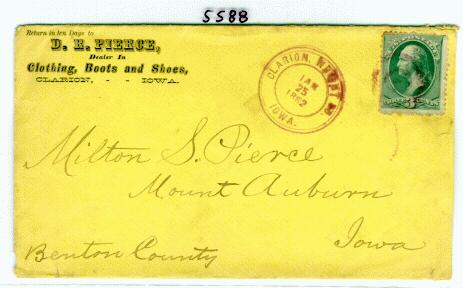 5588
Return in ten days to
D. R. PIERCE,
Dealer In
Clothing, Boots and Shoes,
CLARION, - - IOWA.
CLARION,
JAN
25
1882
IOWA.
3
Milton S. Pierce
Mount Auburn
Iowa
Benton County